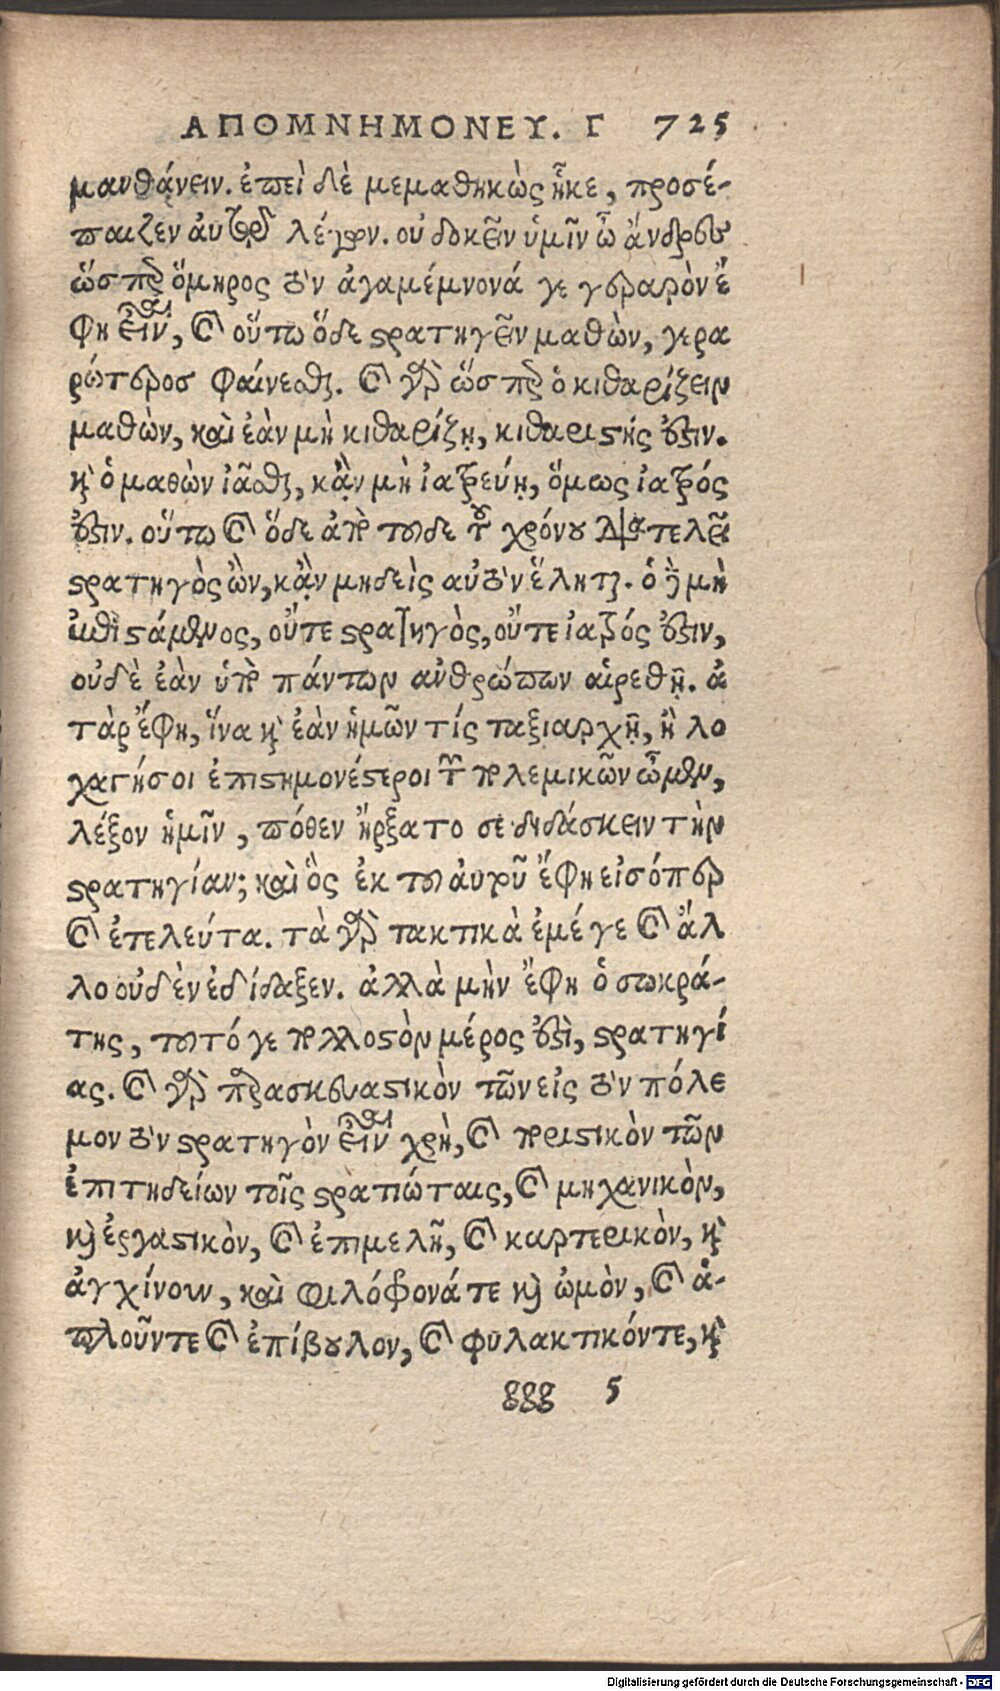 ΑΠΟΜΝΗΜΟΝΕΥ. Γ 725
μανθάνειν. ἐπεὶ δὲ μεμαθηκὼς ἧκε, προσέ-
παιζεν αὐτῷ λέγων. οὐ δοκεῖν ὑμῖν ὦ ἄνδρες
ὥσπερ ὅμηρος τὸν ἀγαμέμνονά γε γεραρὸν ἔ
φη εἶναι, καὶ οὕτω ὅδε στρατηγεῖν μαθὼν, γερα
ρώτερος φαίνεσθαι. καὶ γὰρ ὥσπερ ὁ κιθαρίζειν
μαθὼν, καὶ ἐὰν μὴ κιθαρίζῃ, κιθαριστής ἐστιν.
καὶ ὁ μαθὼν ἰᾶσθαι, κἂν μὴ ἰατρεύῃ, ὅμως ἰατρός
ἐστιν. οὕτω καὶ ὅδε ἀπὸ τοῦδε τοῦ χρόνου διατελεῖ
στρατηγὸς ὢν, κἂν μηδεὶς αὐτὸν ἕληται. ὁ δὲ μὴ
ἐπιστάμενος, οὔτε στρατηγὸς, οὔτε ἰατρός ἐστιν,
οὐδὲ ἐὰν ὑπὸ πάντων ἀνθρώπων αἱρεθῇ. ἀ
τὰρ ἔφη, ἵνα καὶ ἐὰν ἡμῶν τίς ταξιαρχῇ, ἢ λο
χαγήσοι ἐπιστημονέστεροι τῶν πολεμικῶν ὦμεν,
λέξον ἡμῖν, πόθεν ἤρξατο σε διδάσκειν τὴν
στρατηγίαν; καὶ ὃς ἐκ τοῦ αὐτοῦ ἔφη εἰς ὅπερ
καὶ ἐτελεύτα. τὰ γὰρ τακτικὰ ἐμέ γε καὶ ἄλ
λο οὐδὲν ἐδίδαξεν. ἀλλὰ μὴν ἔφη ὁ σωκρά-
της, τοῦτό γε πολλοστὸν μέρος ἐστὶ, στρατηγί
ας. καὶ γὰρ παρασκευαστικὸν τῶν εἰς τὸν πόλε
μον τὸν στρατηγὸν εἶναι χρὴ, καὶ ποριστικὸν τῶν
ἐπιτηδείων τοῖς στρατιώταις, καὶ μηχανικὸν,
καὶ ἐργαστικὸν, καὶ ἐπιμελῆ, καὶ καρτερικὸν, καὶ
ἀγχίνουν, καὶ φιλόφρονά τε καὶ ὠμὸν, καὶ ἁ-
πλοῦν τε καὶ ἐπίβουλον, καὶ φυλακτικόν τε, καὶ
ggg 5
Digitalisierung gefördert durch die Deutsche Forschungsgemeinschaft - DFG